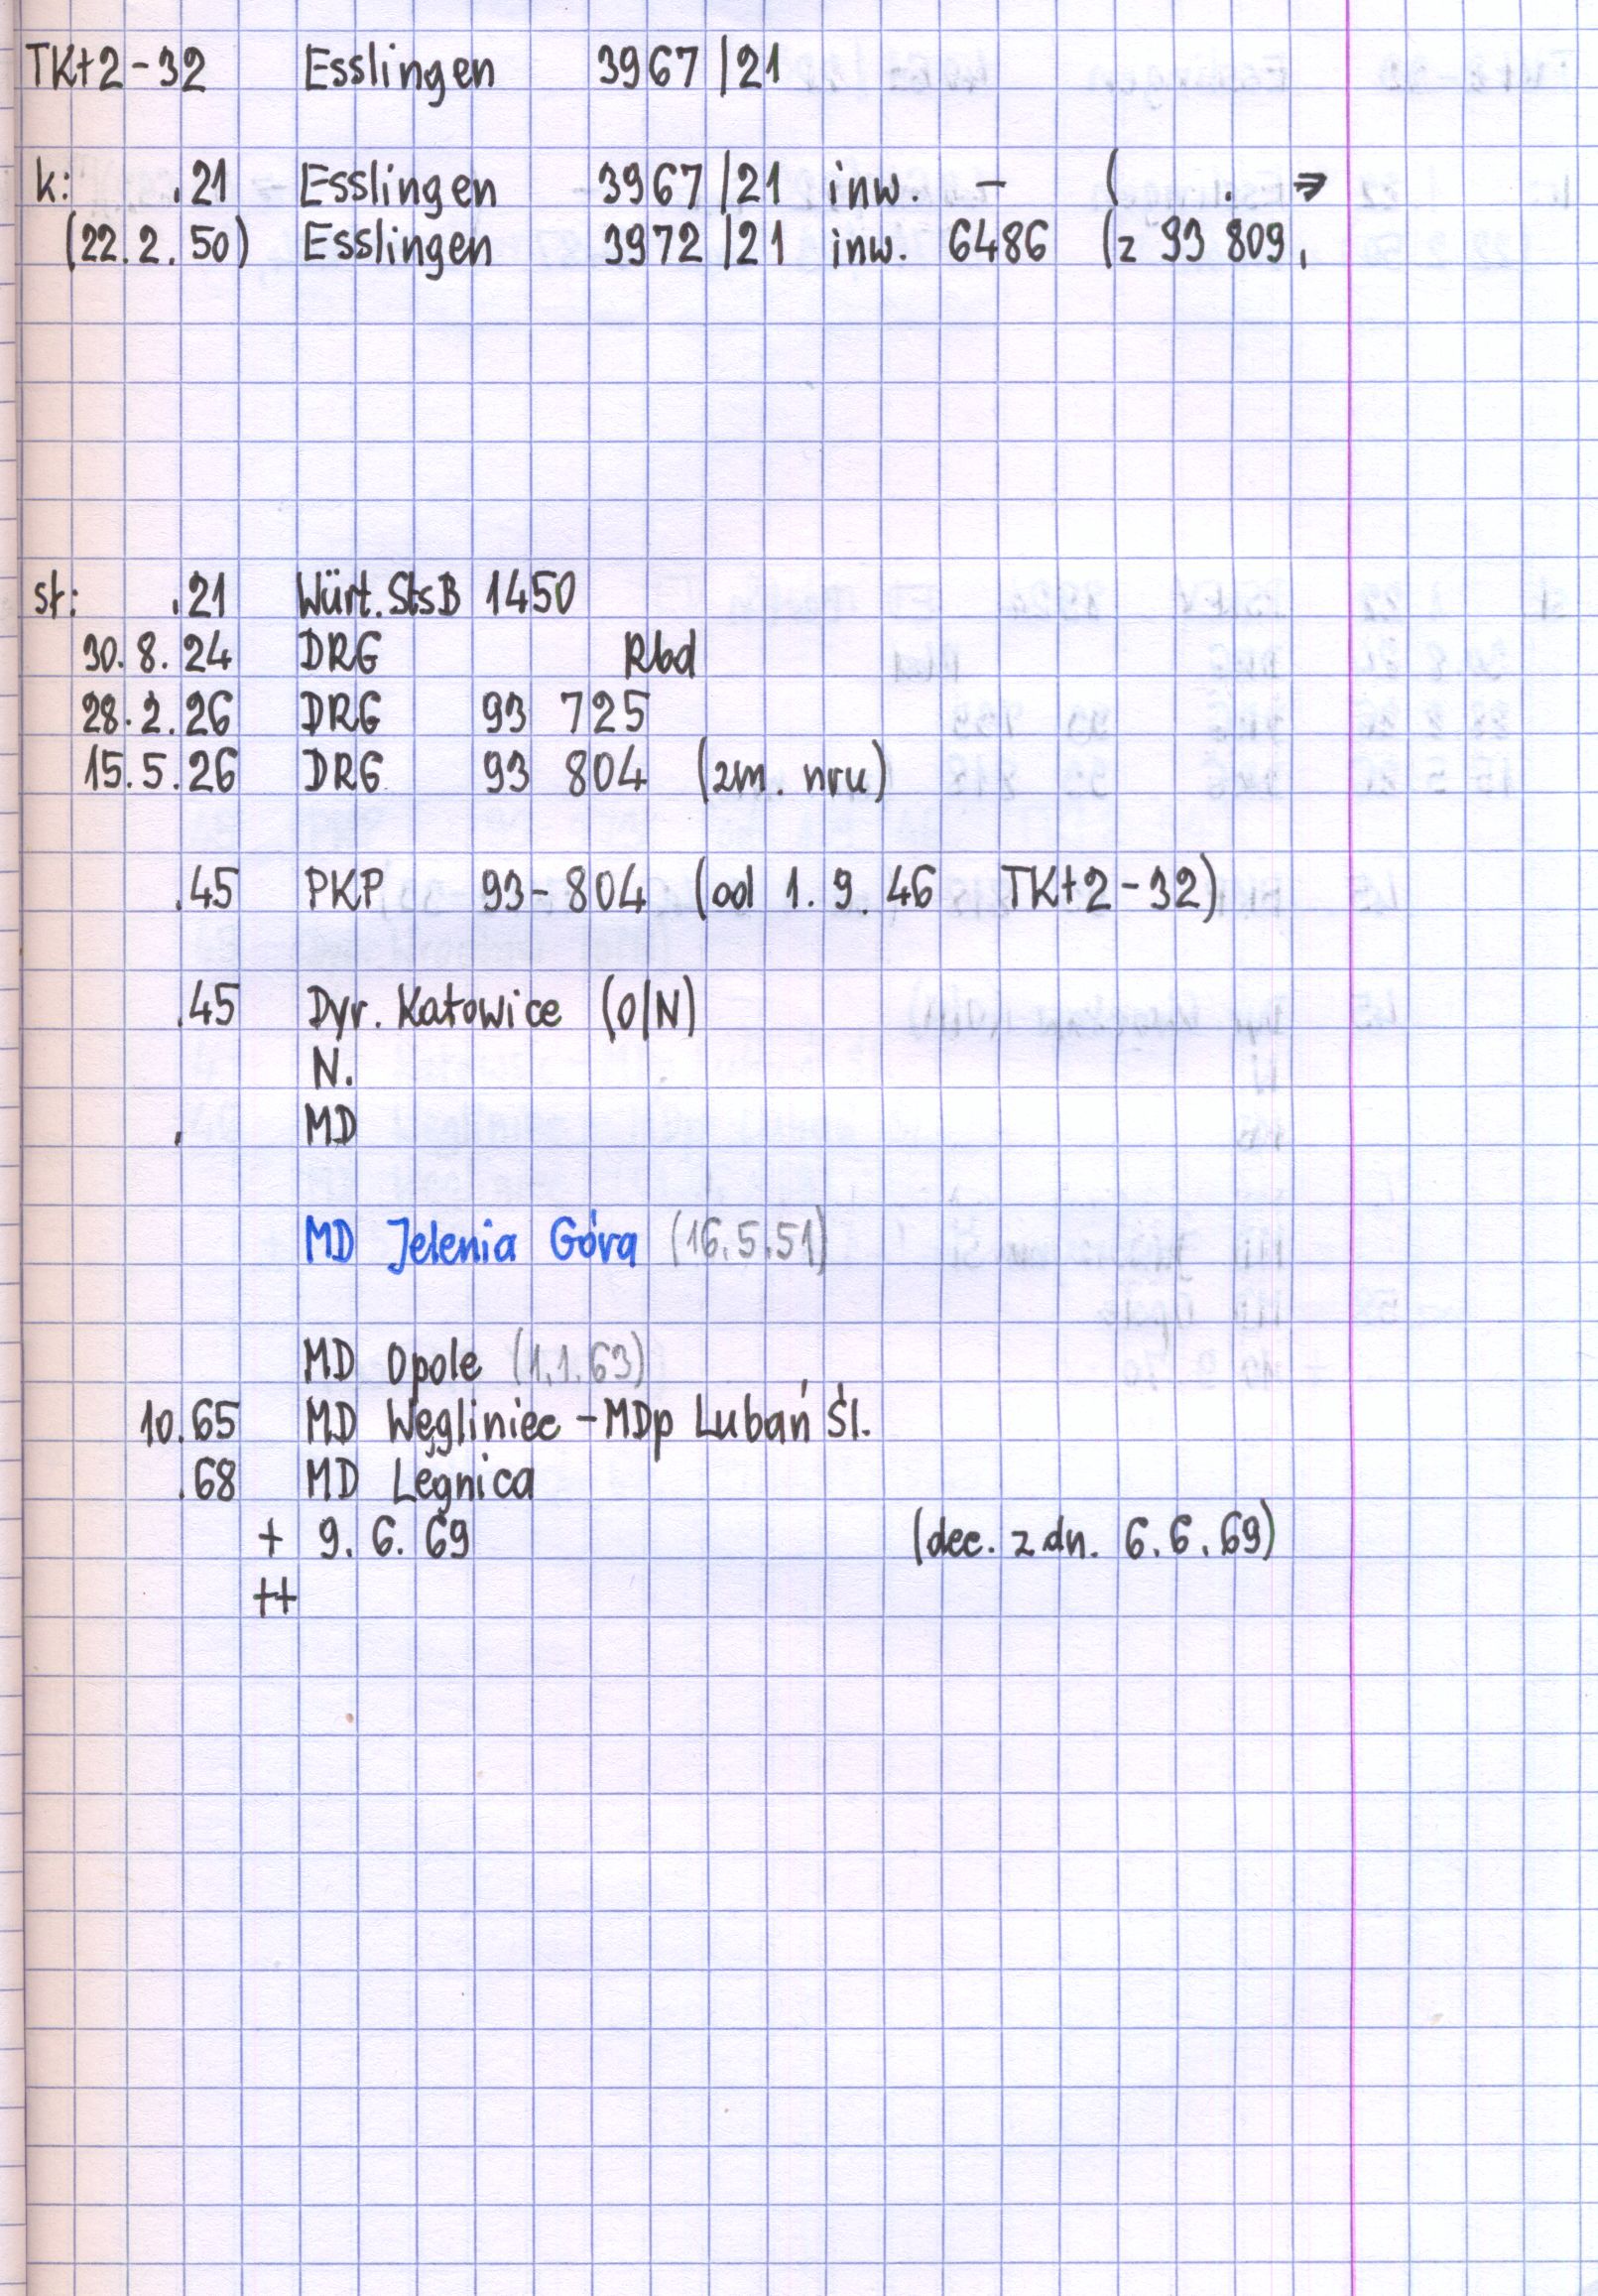 TKt2-32 Esslingen 3967/21
k: .21 Esslingen 3967/21 inw. - ( . ⇒
(22.2.50) Esslingen 3972/21 inw. 6486 (z 93 809,
st: .21 Würt.StsB 1450
30.8.24 DRG Rbd
28.2.26 DRG 93 725
15.5.26 DRG 93 804 (zm. nru)
.45 PKP 93-804 (od 1.9.46 TKt2-32)
.45 Dyr. Katowice (O/N)
N.
. MD
MD Jelenia Góra (16.5.51)
MD Opole (1.1.63)
10.65 MD Węgliniec - MDp Lubań Śl.
.68 MD Legnica
+ 9.6.69 (dec. z dn. 6.6.69)
++